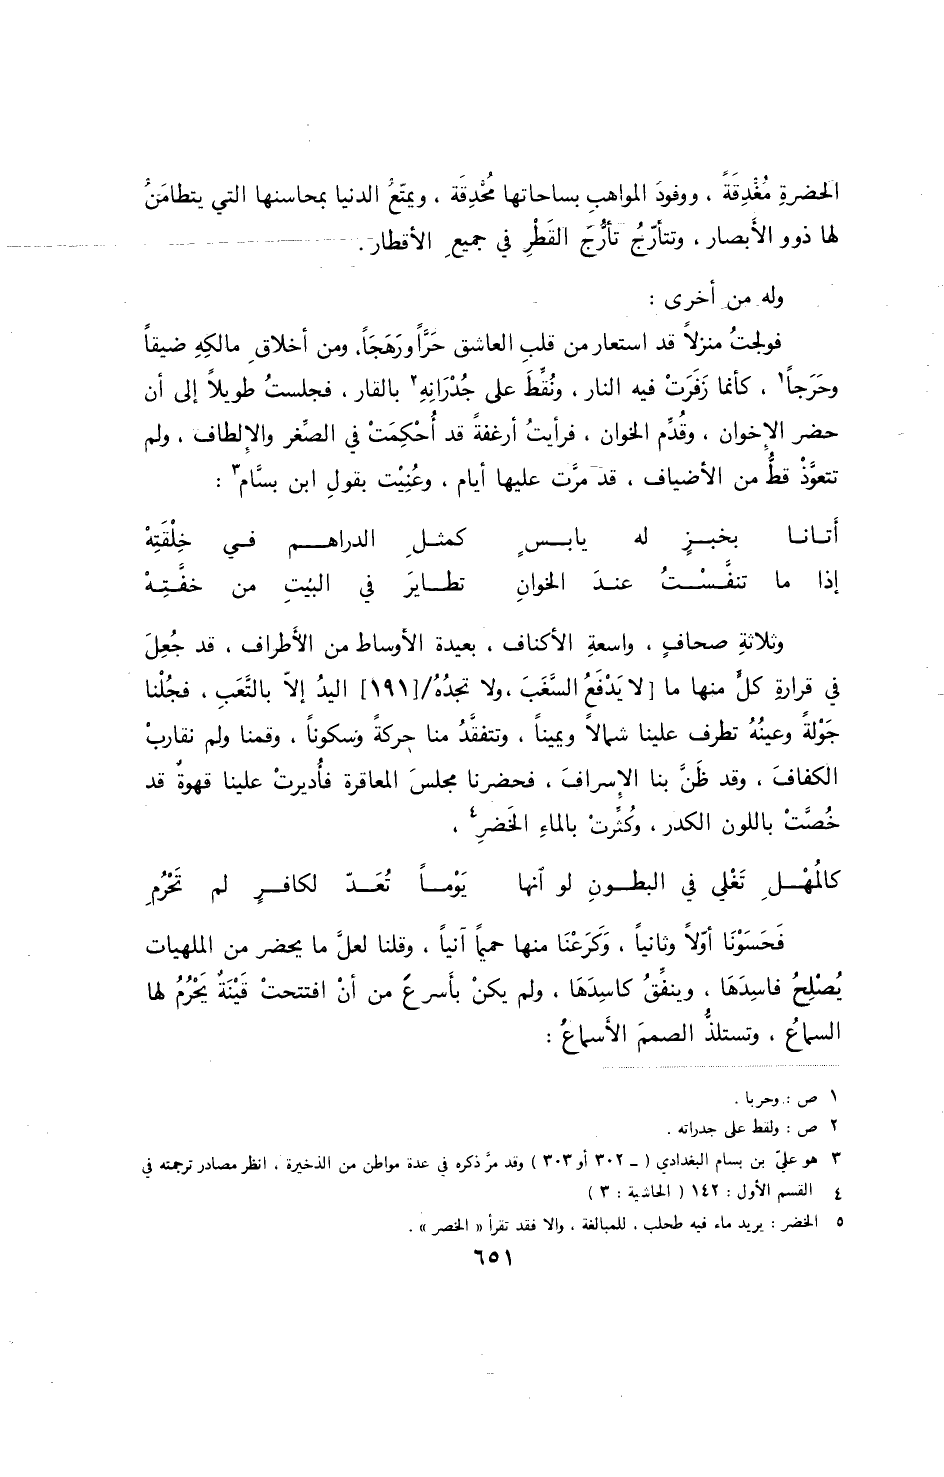 الحضرةِ مُغْدِقَةً ، ووفودَ المواهبِ بساحاتها مُحْدِقَة ، ويمتّعُ الدنيا بمحاسنها التي يتطامَنُ
لها ذوو الأبصار ، وتتأرّجُ تأرُّجَ القَطْرِ في جميعِ الأقطار .
وله من أخرى :
فولجتُ منزلاً قد استعار من قلبِ العاشق حَرَّاً ورَهَجَاً، ومن أخلاقِ مالكِهِ ضيقاً
وحَرَجاً١ ، كأنما زَفَرَتْ فيه النار ، ونُقِّطَ على جُدْرَانِهِ٢ بالقار ، فجلستُ طويلاً إلى أن
حضر الإخوان ، وقُدِّم الخوان ، فرأيتُ أرغفةً قد أُحْكِمَتْ في الصِّغر والإلطاف ، ولم
تتعوَّذْ قطُّ من الأضياف ، قد مرَّت عليها أيام ، وعُنِيْت بقولِ ابن بسَّام٣ :
أتانا بخبزٍ له يابسٍ كمثلِ الدراهم في خِلْقَتِهْ
إذا ما تنفَّسْتُ عندَ الخوانِ تطايرَ في البيْتِ من خفَّتِهْ
وثلاثةِ صحافٍ ، واسعةِ الأكناف ، بعيدة الأوساط من الأطراف ، قد جُعِلَ
في قرارةِ كلٍّ منها ما [لا يَدْفَعُ السَّغَبَ ، ولا تجدُهُ/[١٩١] اليدُ إلاّ بالتَّعَبِ ، فجُلْنا
جَوْلةً وعينُهُ تطرف علينا شمالاً ويميناً ، وتتفقَّدُ منا حركةً وسكوناً ، وقمنا ولم نقاربْ
الكفافَ ، وقد ظَنَّ بنا الإسرافَ ، فحضرنا مجلسَ المعاقرة فأُديرتْ علينا قهوةٌ قد
خُصَّتْ باللون الكدر ، وكُثِّرتْ بالماءِ الخَضرِ٤ ،
كالمُهْلِ تَغْلي في البطونِ لو آنها يَوْماً تُعَدّ لكافرٍ لم تَحْرُمِ
فَحَسَوْنَا أوّلاً وثانياً ، وَكَرَعْنَا منها حميماً آنياً ، وقلنا لعلَّ ما يحضر من الملهيات
يُصْلِحُ فاسِدَهَا ، وينفِّقُ كاسِدَهَا ، ولم يكنْ بأسرعَ من أنْ افتتحتْ قَيْنَةٌ يَحْرُمُ لها
السماعُ ، وتستلذُّ الصممَ الأسماعُ :
١ ص : وحربا .
٢ ص : ولقط على جدراته .
٣ هو عليّ بن بسام البغدادي ( ـ ٣٠٢ أو ٣٠٣ ) وقد مرَّ ذكره في عدة مواطن من الذخيرة ، انظر مصادر ترجمته في
٤ القسم الأول : ١٤٢ ( الحاشية : ٣ )
٥ الخضر : يريد ماء فيه طحلب ، للمبالغة ، والا فقد تقرأ « الخصر » .
٦٥١